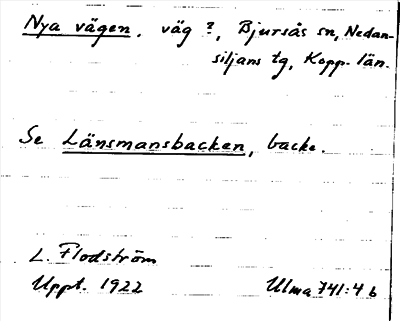 Nya vägen. väg ?, Bjursås sn, Nedan-
siljans tg, Kopp. län.
Se Länsmansbacken, backe.
L. Flodström
Uppt. 1922 Ulma 741:4 b